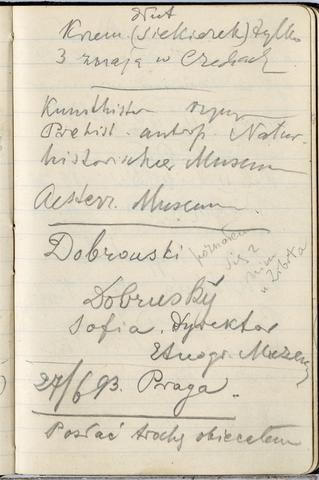 Krzem. (siekierek) tylko
3 znają w Czechach
Kunsthistor
Prähist. antrop. Natur-
historisches Museum
Aesterr. Museum
Dobrowski
poznałem
się z
nim
u Zibrta
Dobruský
Sofia. Dyrektor
Etnogr. Muzeum
27/6 93. Praga.
Posłać trochę obiecałem